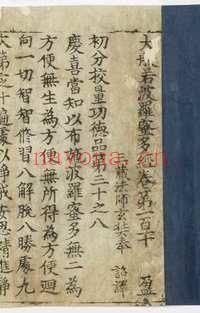 大般若波羅蜜多經卷第一百十 盈
三藏法師玄奘奉 詔譯
初分校量功德品第三十之八
慶喜當知以布施波羅蜜多無二為
方便無生為方便無所得為方便迴
向一切智智修習八解脫八勝處九
次第定十遍處以淨戒安忍精進靜